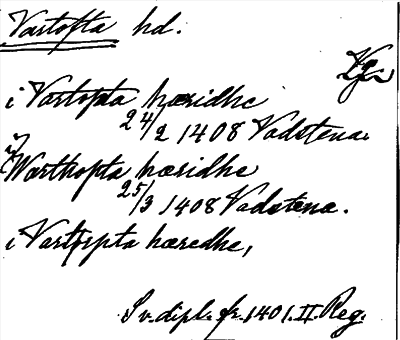 Vartofta hd.
Vg.
i Vartopta hæridhe
24/2 1408 Vadstena.
i Warthopta hæridhe
25/3 1408 Vadstena.
i Vartorpta hæredhe,
Sv. dipl. fr. 1401. II. Reg.